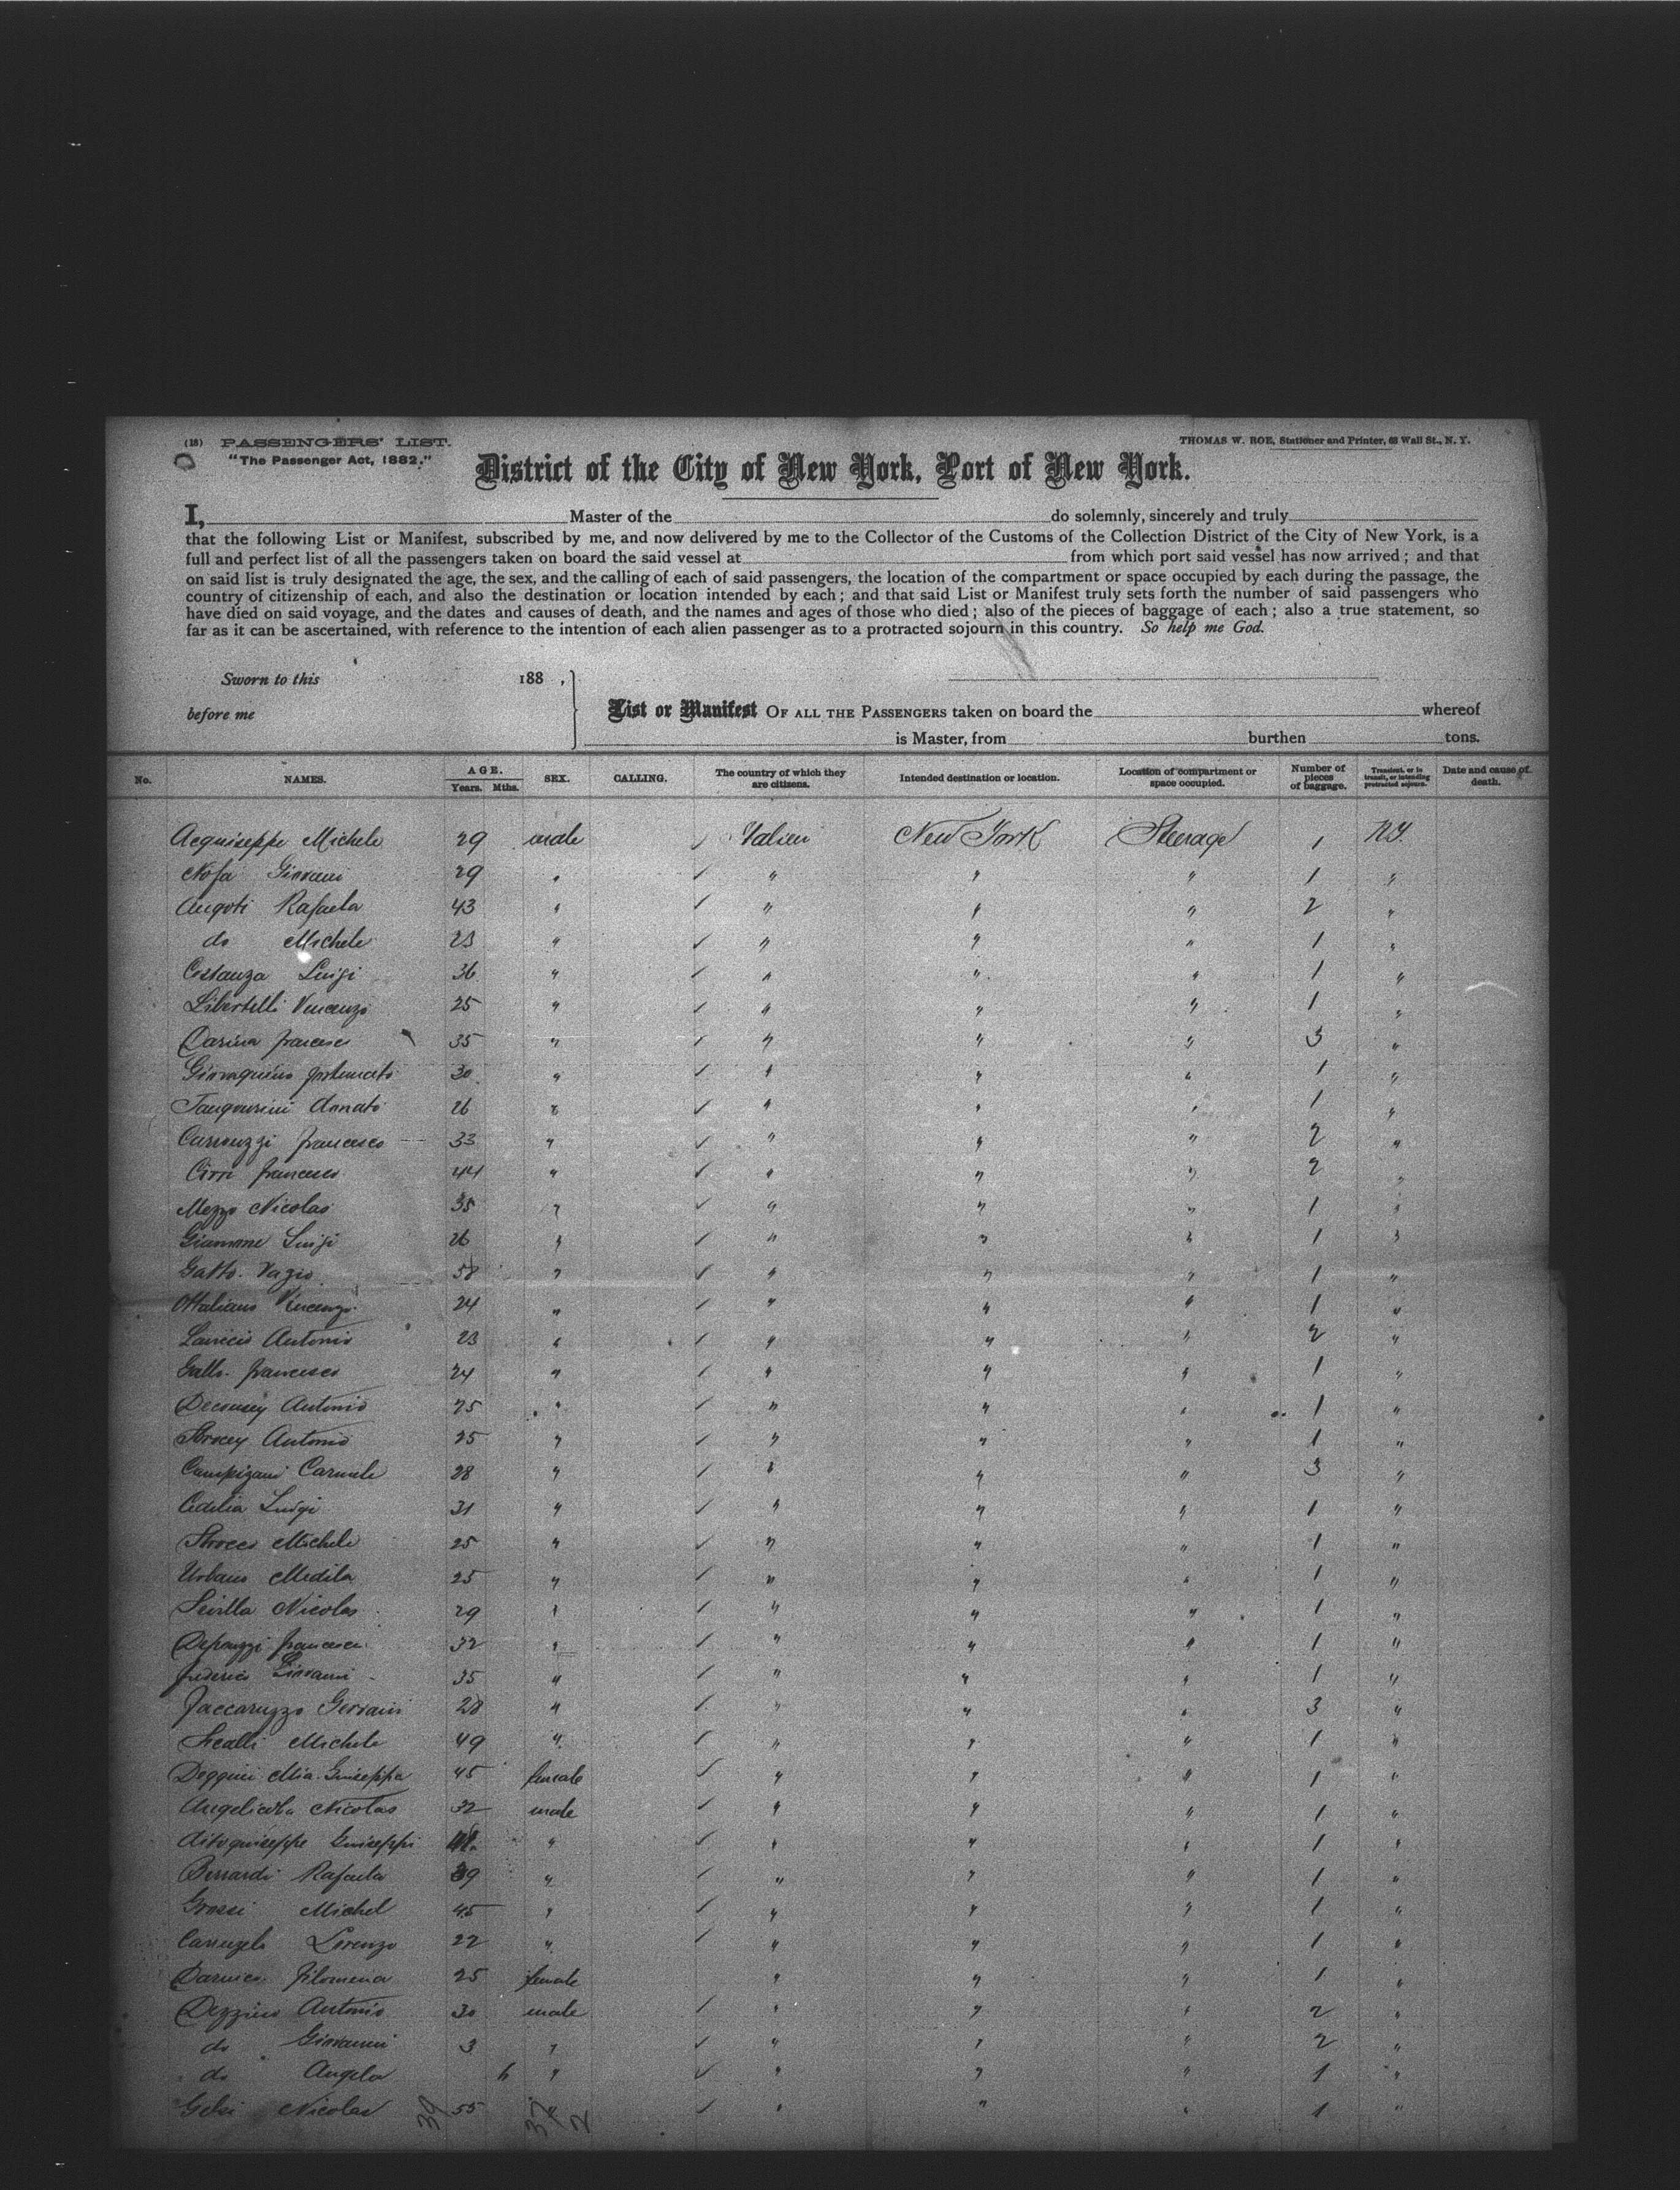 (18) PASSENGERS' LIST.
THOMAS W. ROE, Stationer and Printer, 63 Wall St., N. Y.
"The Passenger Act, 1882."
District of the City of New York, Port of New York.
I, Master of the do solemnly, sincerely and truly
that the following List or Manifest, subscribed by me, and now delivered by me to the Collector of the Customs of the Collection District of the City of New York, is a
full and perfect list of all the passengers taken on board the said vessel at from which port said vessel has now arrived; and that
on said list is truly designated the age, the sex, and the calling of each of said passengers, the location of the compartment or space occupied by each during the passage, the
country of citizenship of each, and also the destination or location intended by each; and that said List or Manifest truly sets forth the number of said passengers who
have died on said voyage, and the dates and causes of death, and the names and ages of those who died; also of the pieces of baggage of each; also a true statement, so
far as it can be ascertained, with reference to the intention of each alien passenger as to a protracted sojourn in this country. So help me God.
Sworn to this 188 ,
before me
List or Manifest OF ALL THE PASSENGERS taken on board the whereof
is Master, from burthen tons.
No. NAMES. AGE. Years. Mths. SEX. CALLING. The country of which they are citizens. Intended destination or location. Location of compartment or space occupied. Number of pieces of baggage. Transient, or in transit, or intending protracted sojourn. Date and cause of death.
Acquiseppe Michele 29 male ✓ Italien New York Steerage 1 N.Y.
Nofa Giovani 29 " ✓ " " " 1 "
Angoti Rafaela 43 " ✓ " " " 2 "
do Michele 23 " ✓ " " " 1 "
Costanza Luigi 36 " ✓ " " " 1 "
Libertelli Vincenzo 25 " ✓ " " " 1 "
Francesco 35 " ✓ " " " 3 "
fortunato 30 " ✓ " " " 1 "
Donato 26 " ✓ " " " 1 "
Carnuzzi francesco 33 " ✓ " " " 2 "
Cirri francesco 44 " ✓ " " " 2 "
Mezzo Nicolas 35 " ✓ " " " 1 "
Giamone Luigi 26 " ✓ " " " 1 "
Gatto Vazio 58 " ✓ " " " 1 "
Ottaliano Vincenzo 24 " ✓ " " " 1 "
Antonio 23 " ✓ " " " 2 "
Gallo francesco 24 " ✓ " " " 1 "
Antonio 25 " ✓ " " " 1 "
Strocey Antonio 25 " ✓ " " " 1 "
Campizani Carmele 28 " ✓ " " " 3 "
Cedilia Luigi 31 " ✓ " " " 1 "
Michele 25 " ✓ " " " 1 "
Urbano Medila 25 " ✓ " " " 1 "
Nicolas 29 " ✓ " " " 1 "
francesco 32 " ✓ " " " 1 "
federico Giovanni 35 " ✓ " " " 1 "
Jaccaruzzo 28 " ✓ " " " 3 "
Michele 49 " ✓ " " " 1 "
Mia Guiseppa 45 female ✓ " " " 1 "
Angelicola Nicolas 32 male ✓ " " " 1 "
Guiseppi " ✓ " " " 1 "
Berrardi Rafaela 39 " ✓ " " " 1 "
Grossi Michel 45 " ✓ " " " 1 "
Lorenzo 22 " ✓ " " " 1 "
filomena 25 female " " " 1 "
Dezzino Antonio 30 male ✓ " " " 2 "
do Giovanni 3 " ✓ " " " 2 "
do Angelo 6 " ✓ " " " 1 "
Gelsi Nicolas 55 " ✓ " " " 1 "
39 37 2